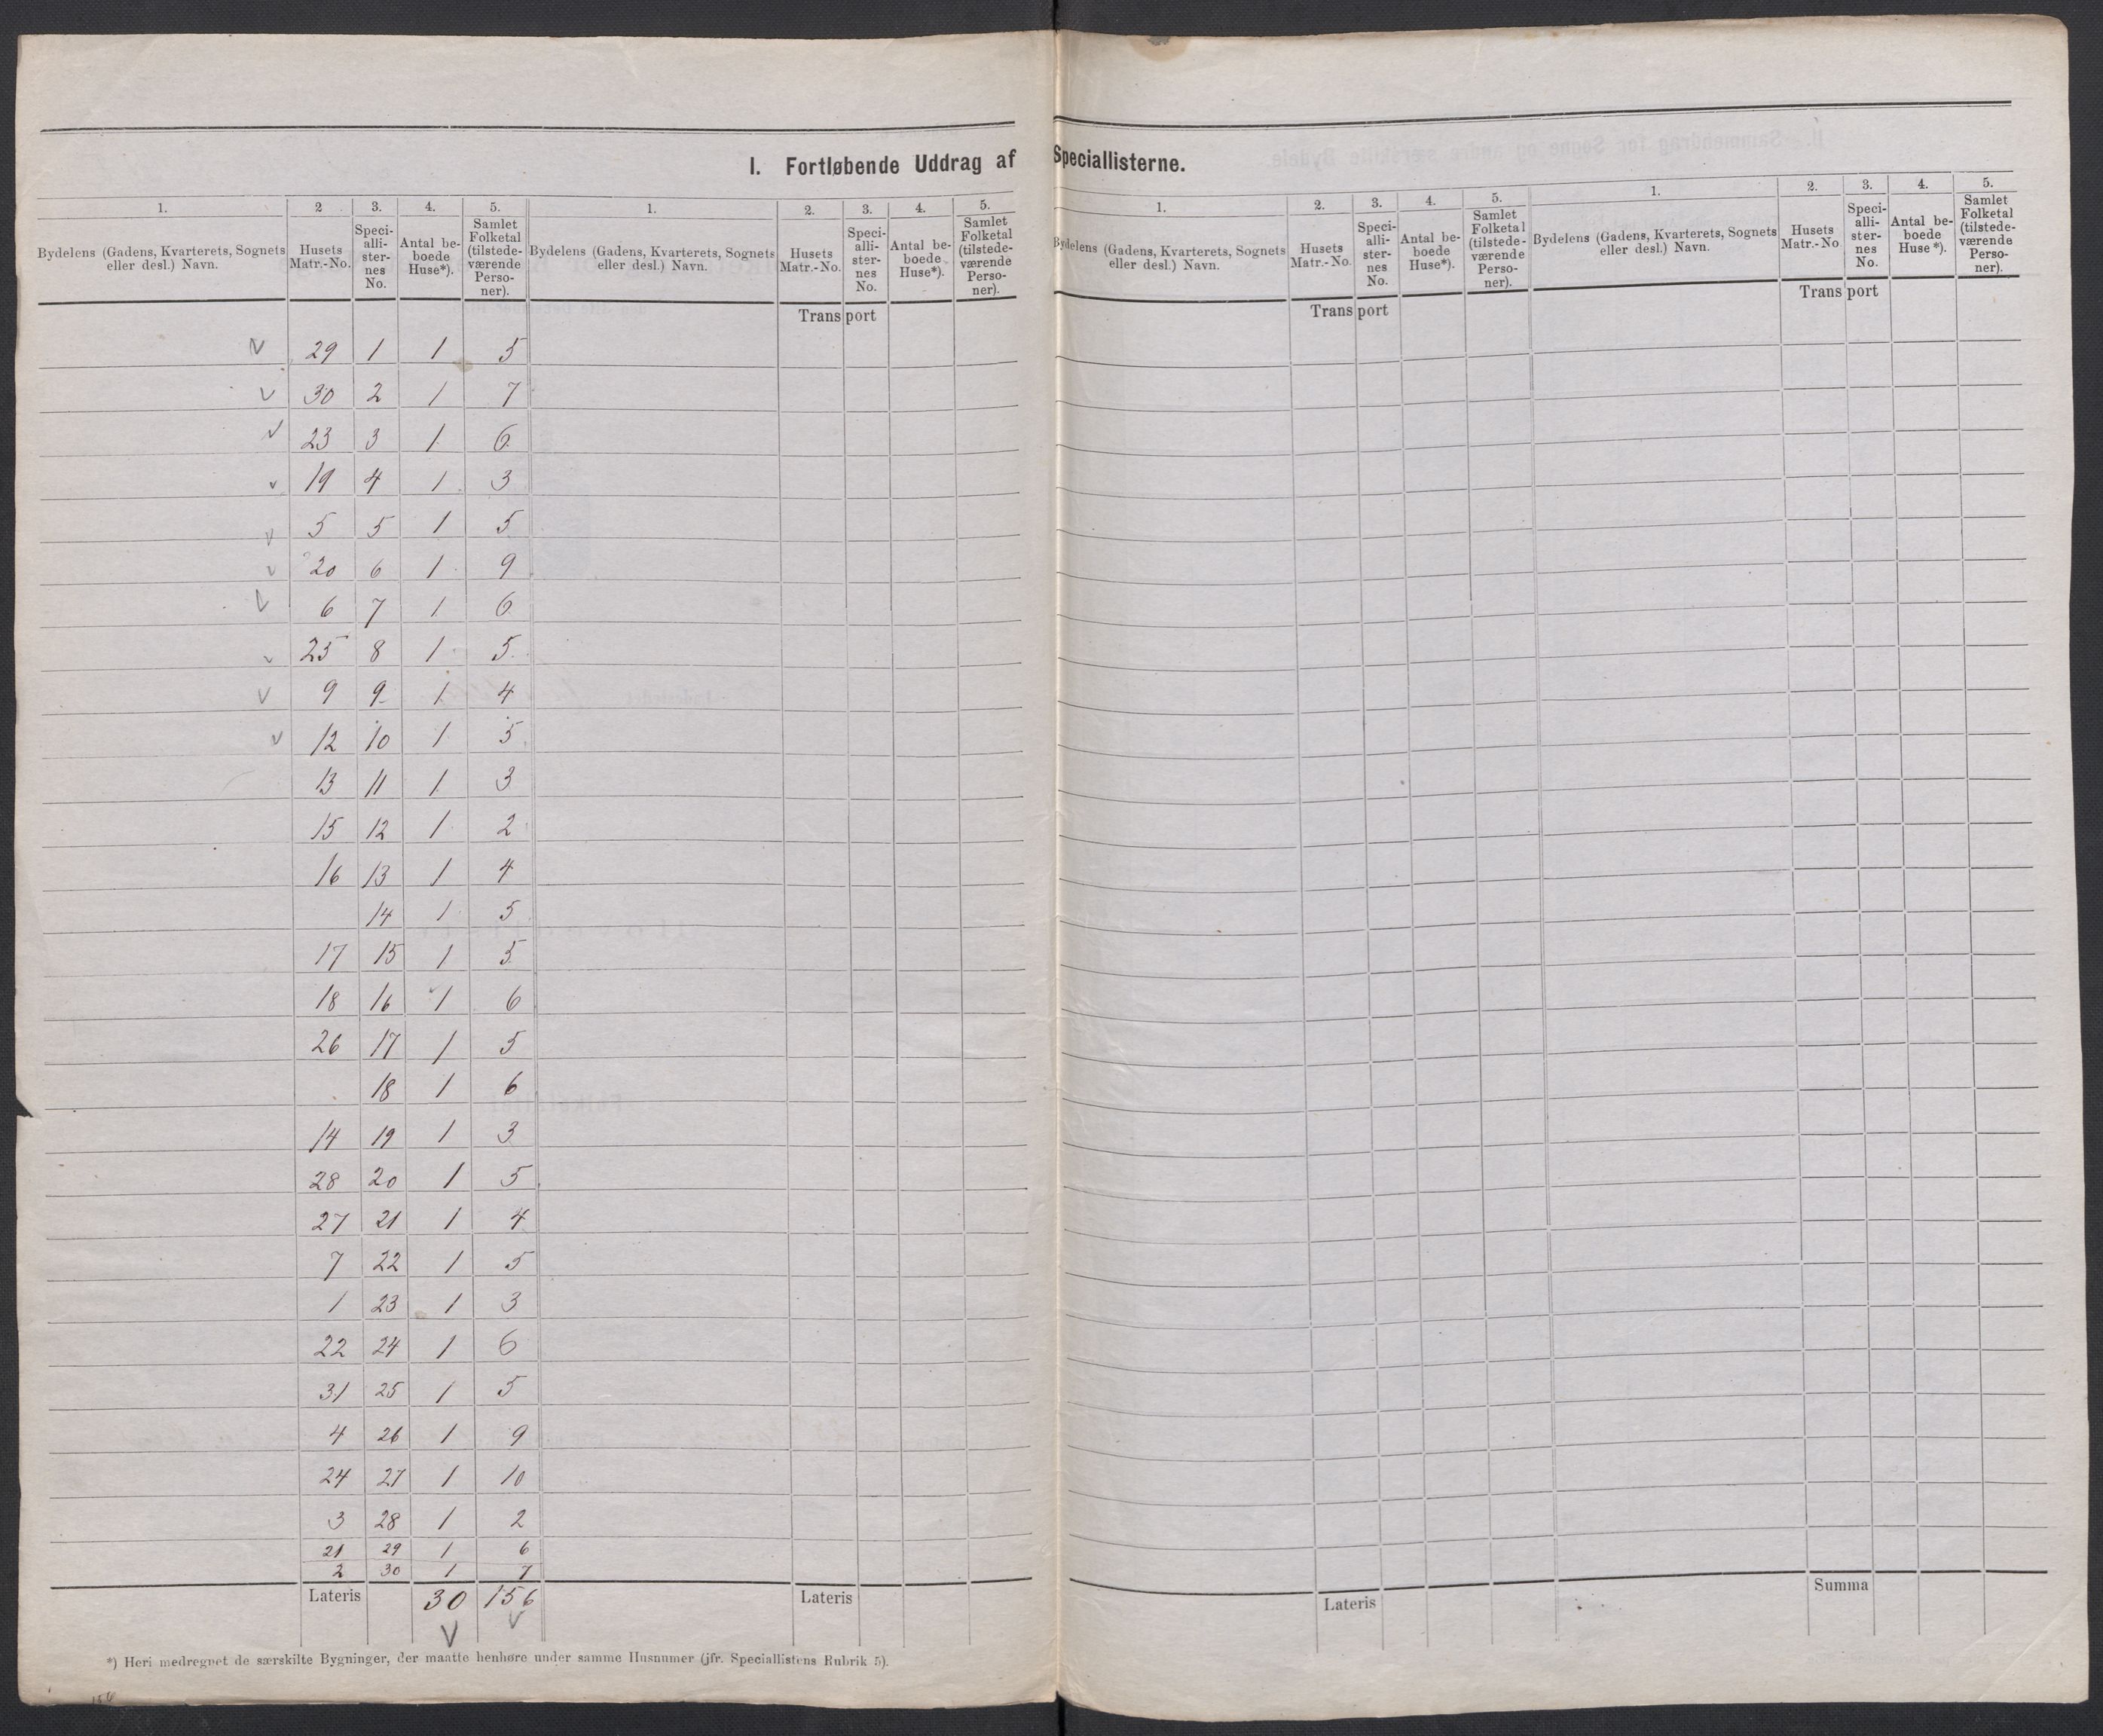 I. Fortløbende Uddrag af Speciallisterne.
1. 2 3. 4. 5. 1. 2. 3. 4. 5.
Bydelens (Gadens, Kvarterets, Sognets eller desl.) Navn. Husets Matr.-No. Speci-alli-ster-nes No. Antal be-boede Huse*). Samlet Folketal (tilstede-værende Perso-ner). Bydelens (Gadens, Kvarterets, Sognets eller desl.) Navn. Husets Matr.-No. Speci-alli-ster-nes No. Antal be-boede Huse*). Samlet Folketal (tilstede-værende Perso-ner).
Transport
29 1 1 5
30 2 1 7
23 3 1 6
19 4 1 3
5 5 1 5
20 6 1 9
6 7 1 6
25 8 1 5
9 9 1 4
12 10 1 5
13 11 1 3
15 12 1 2
16 13 1 4
14 1 5
17 15 1 5
18 16 1 6
26 17 1 5
18 1 6
14 19 1 3
28 20 1 5
27 21 1 4
7 22 1 5
1 23 1 3
22 24 1 6
31 25 1 5
4 26 1 9
24 27 1 10
3 28 1 2
21 29 1 6
2 30 1 7
Lateris 30 156 Lateris
*) Heri medregnet de særskilte Bygninger, der maatte henhøre under samme Husnumer (jfr. Speciallistens Rubrik 5).
156
1. 2. 3. 4. 5. 1. 2. 3. 4. 5.
Bydelens (Gadens, Kvarterets, Sognets eller desl.) Navn. Husets Matr.-No. Speci-alli-ster-nes No. Antal be-boede Huse*). Samlet Folketal (tilstede-værende Perso-ner). Bydelens (Gadens, Kvarterets, Sognets eller desl.) Navn. Husets Matr.-No Speci-alli-ster-nes No. Antal be-boede Huse*). Samlet Folketal (tilstede-værende Perso-ner).
Transport Transport
Lateris Summa